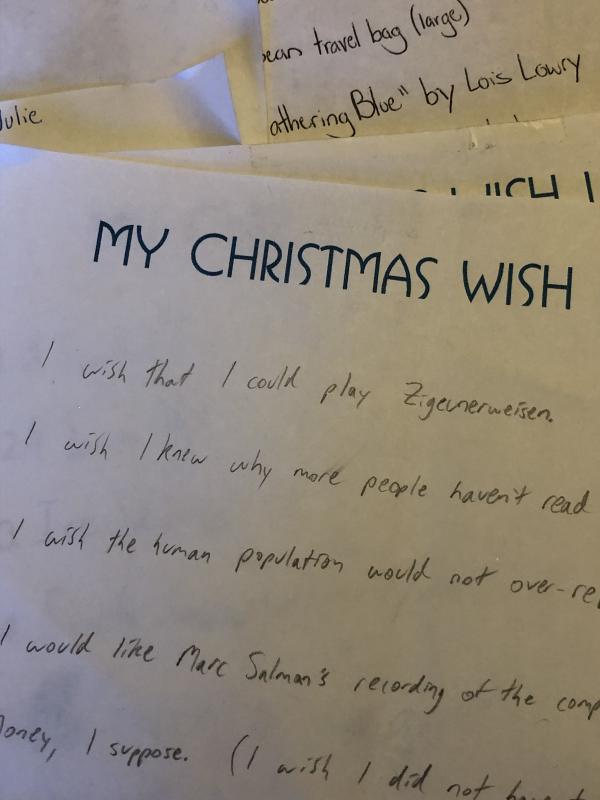 ean travel bag (large)
athering Blue" by Lois Lowry
Julie
WISH
MY CHRISTMAS WISH
I wish that I could play Zigeunerweisen.
I wish I knew why more people haven't read
I wish the human population would not over-re
I would like Marc Salman's recording of the comp
Money, I suppose. (I wish I did not have t